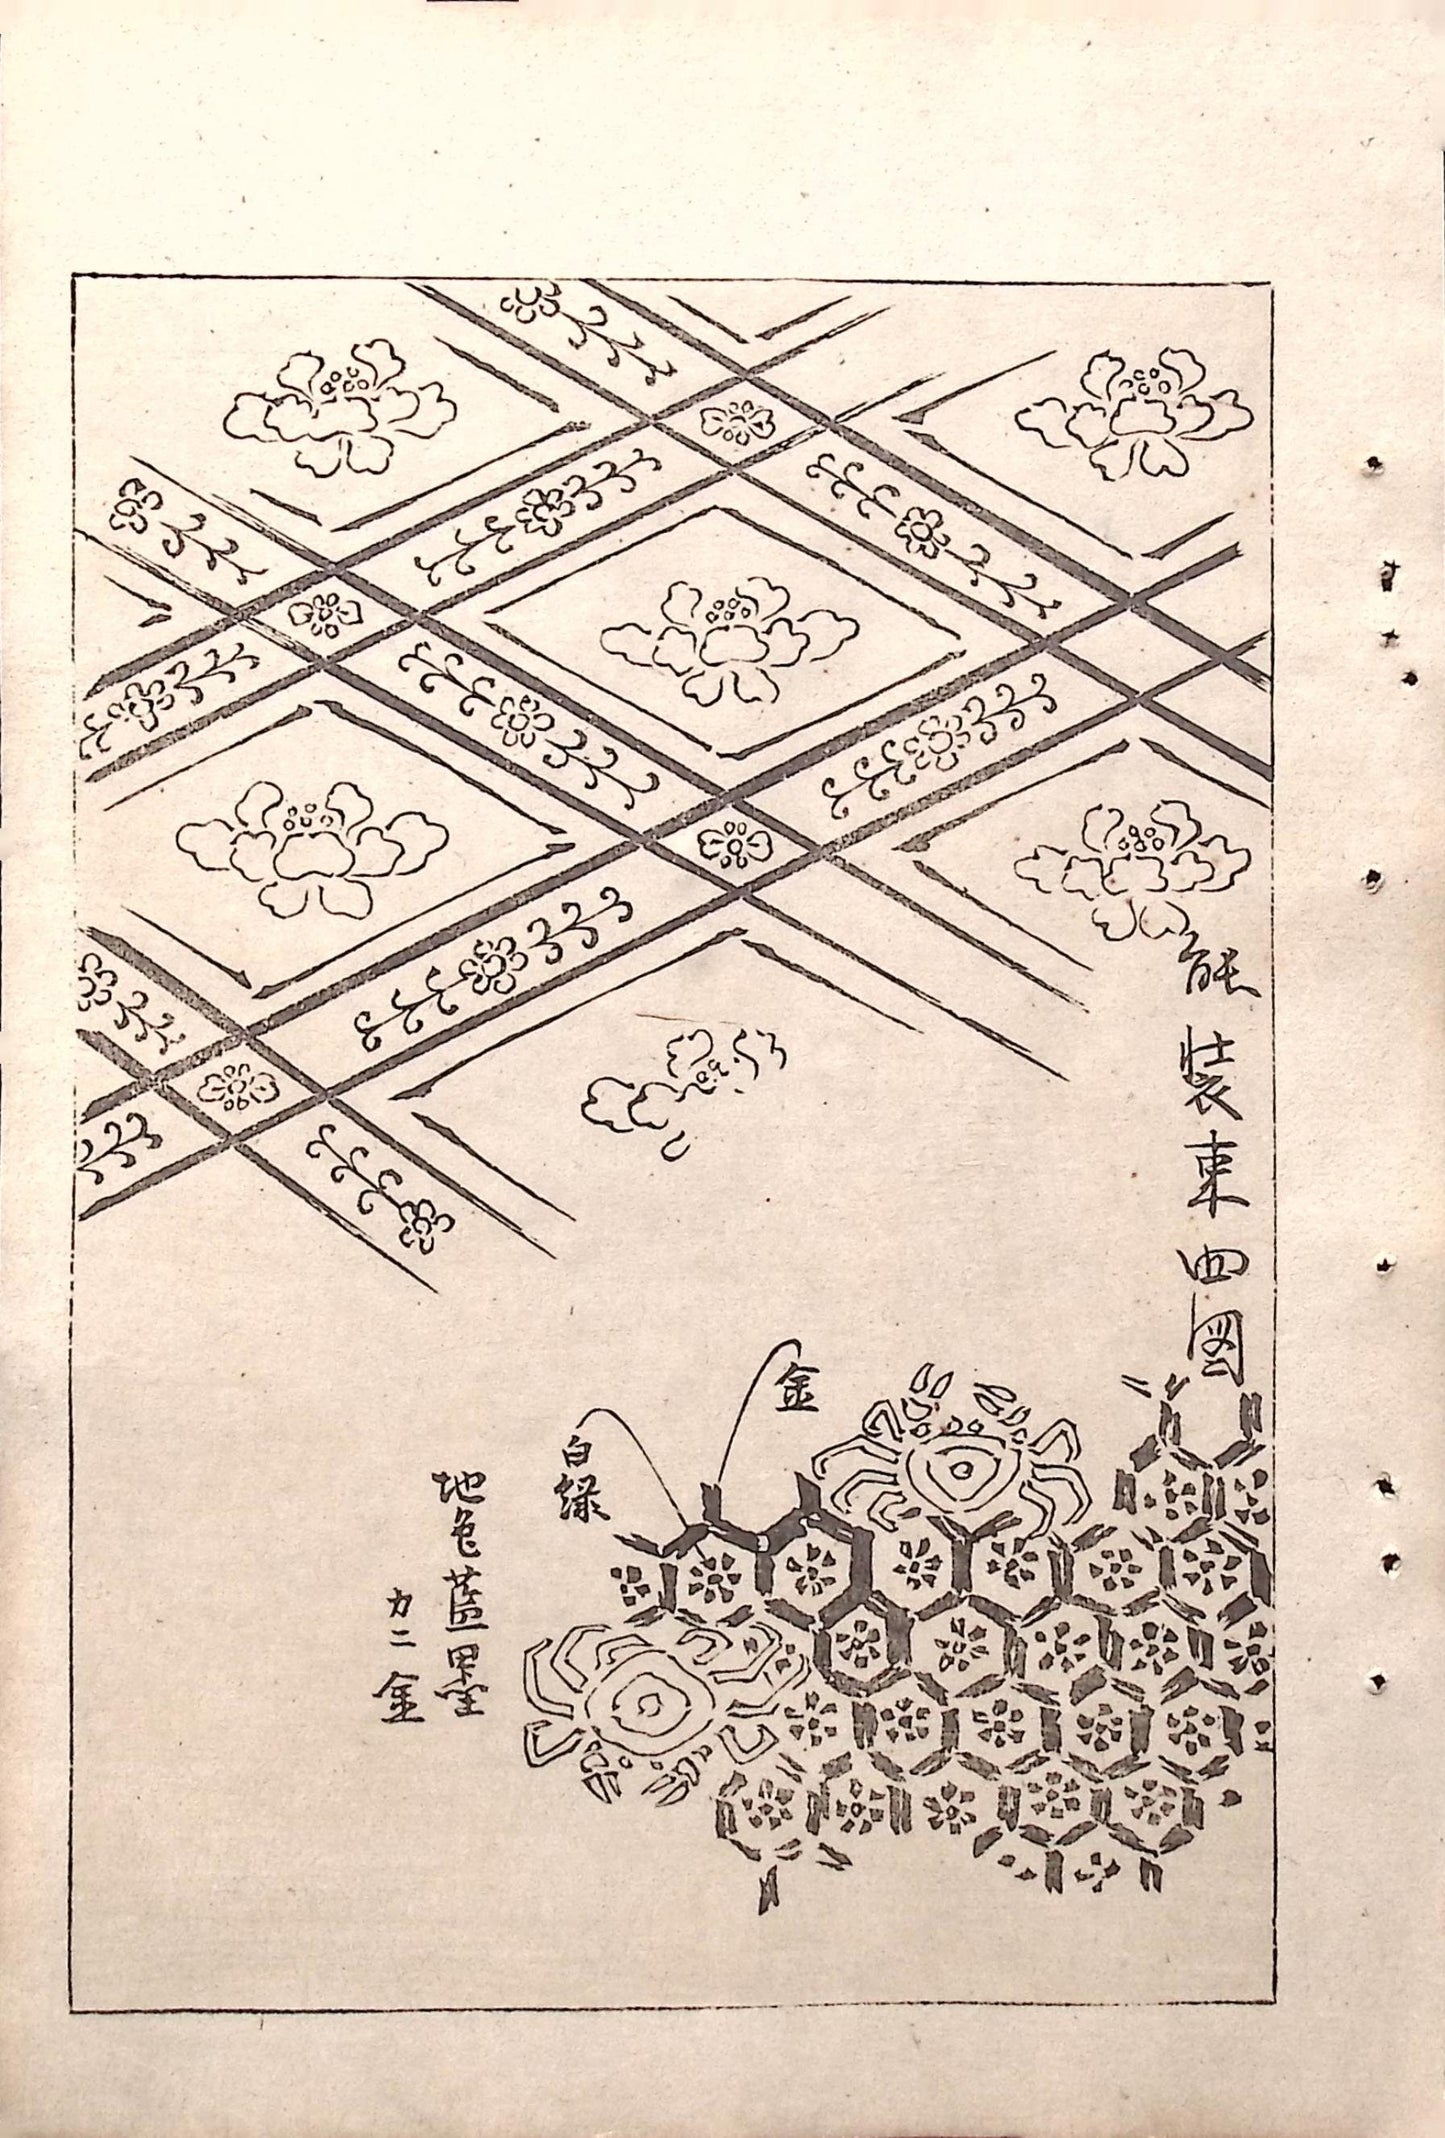 能装束四図
金
白緑
地色藍墨
カニ金